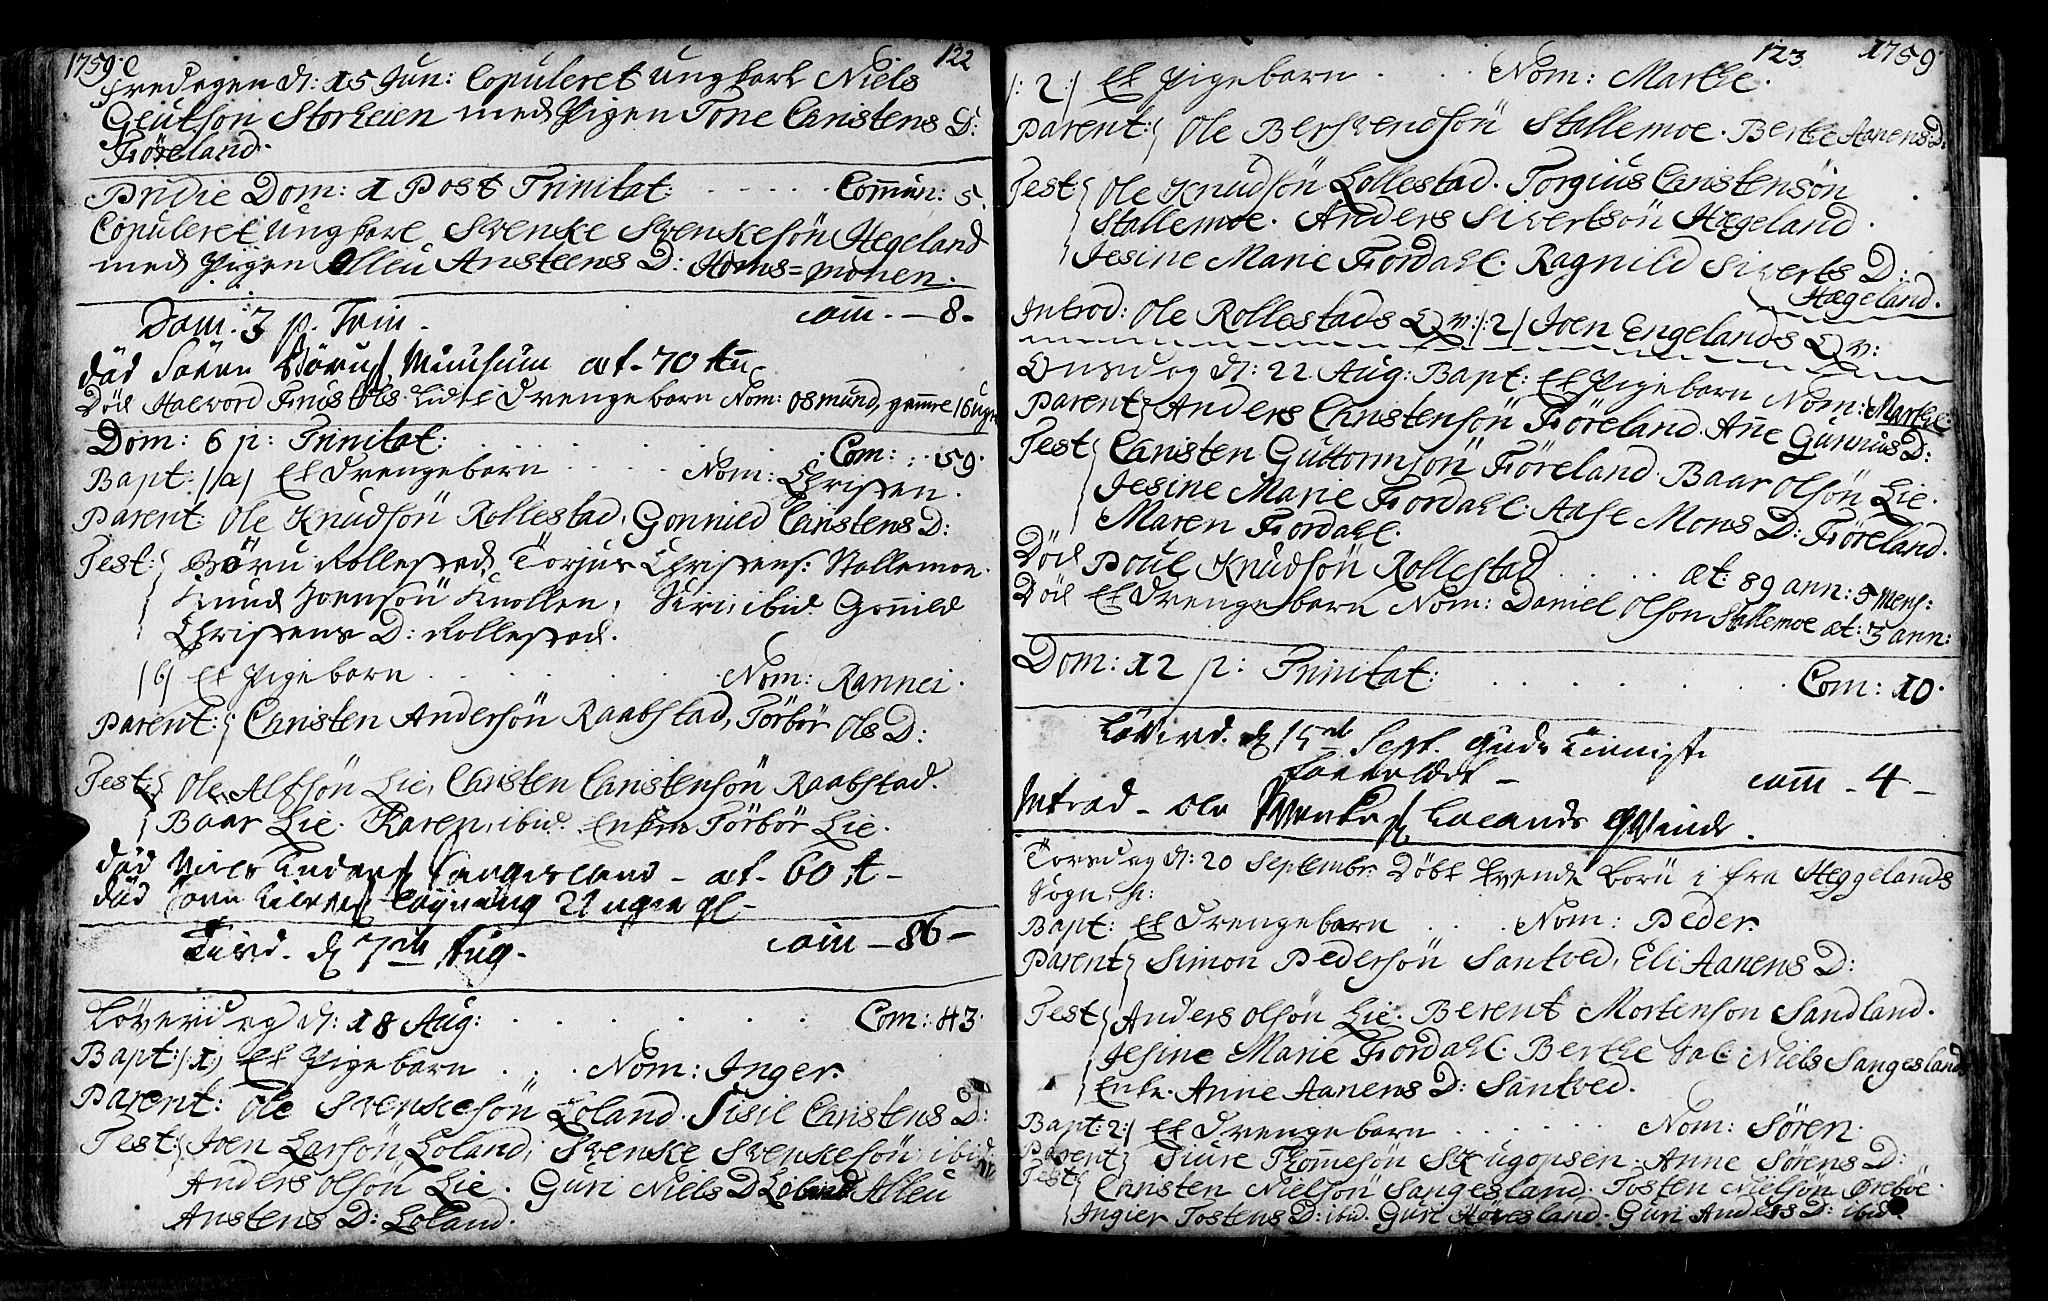 1759.
122
Fredagen d: 15 Jun: Copuleret ungkarl Niels
Geutson Storheien med Pigen Tone Christens D:
Föreland.
Pridie Dom: 1 Post Trinitat: Com̄un: 5.
Copuleret ungkarl Svenke Svenkesön Hegeland
med Pigen Alleu Ansteens D: Homs=mohen.
Dom. 3 p. Trin. com̄. 8.
död Sören æt. 70
Död Halvord lidet Drengebarn Nom: Osmund, gamel 16 ugr
Dom: 6 p: Trinitat: Com: 59.
Bapt: /a/ Et Drengebarn Nom: Christen.
Parent: Ole Knudsön Rollestad, Gonnied Christens D:
Test: Böru Rollestad, Torjus Christens: Stallemoe.
Knud Joensön Knollen, Siri, ibid. Gonnild
Christens D: Rollestad.
/b/ Et Pigebarn Nom: Rannei.
Parent: Christen Andersön Raabstad, Törbör Ols D:
Test: Ole Alfsön Lie, Christen Christensön Raabstad.
Baar Lie. Karen, ibid. Enken Törbör Lie.
död Niels Sangesland - æt. 60
död 21 ugr gl.
Tirsd. d 7de Aug. com̄ - 86 -
Löverdag d: 18 Aug: Com: 43.
Bapt: /:1:/ Et Pigebarn Nom: Inger.
Parent: Ole Svenkesön Loland. Sisil Christens D:
Test: Joen Larsön Loland, Svenke Svenkesön, ibid.
Anders Olsön Lie. Guri Niels D Loland Alleu
Anstens D: Loland.
123
1759.
/:2:/ Et Pigebarn Nom: Marthe.
Parent: Ole Bersvendsön Stallemoe. Berthe Aanens D:
Test: Ole Knudsön Rollestad. Torgius Christensön
Stallemoe. Anders Sivertsön Hægeland.
Jesine Marie Fiordahl. Ragnild Siverts D:
Hægeland.
Introd: Ole Rollestads Qv: /:2:/ Joen Engelands Qv:
Onsdag d: 22 Aug: Bapt: Et Pigebarn Nom: Marthe.
Parent: Anders Christensön Föreland. Añe Gunnus D:
Test: Christen Guttormsön Föreland. Baar Olsön Lie.
Jesine Marie Fiordahl. Aase Mons D: Föreland.
Maren Fiordahl.
Död Poul Knudsön Rollestad æt: 89 ann: 5 mens:
Död Et Drengebarn Nom: Daniel Olsön Stallemoe æt: 3 ann:
Dom: 12 p: Trinitat: Com: 10.
Löverd. d 15de Sept. Guds Tienniste
com̄ - 4 -
Introd - Ole Lolands Qvinde.
Torsdag d: 20 Septembr. Döbt tvende Börn i fra Heggelands
Sogn,
Bapt: Et Drengebarn Nom: Peder.
Parent: Simon Pedersön Santved, Eli Aanens D:
Test: Anders Olsön Lie. Berent Mortenson Sandland.
Jesine Marie Fiordahl. Berthe Sal: Niels Sangeslands
Enke. Anne Aanens D: Santved.
Bapt: 2:/ Et Drengebarn Nom: Sören.
Parent: Tiure Thom̄esön Skugopsen. Anne Sörens D:
Test: Christen Nielsön Sangesland. Tosten Nielsön Öreböe.
Ingier Tostens D: ibid. Guri Høvesland. Guri Anders D: ibid.